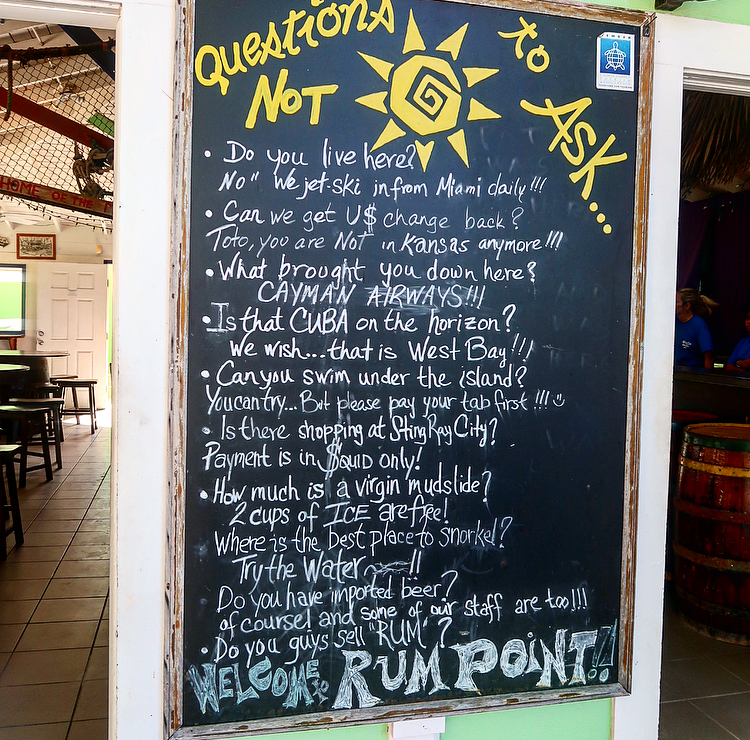 QUESTIONS
NOT
to
ASK...
• Do you live here?
No" We jet-ski in from Miami daily!!!
• Can we get U$ change back?
Toto, you are NOT in Kansas anymore!!!
• What brought you down here?
CAYMAN AIRWAYS!!!
• Is that CUBA on the horizon?
We wish...that is West Bay!!!
• Can you swim under the island?
You can try... But please pay your tab first!!!
• Is there shopping at Sting Ray City?
Payment is in $QUID only!
• How much is a virgin mudslide?
2 cups of ICE are free!
Where is the best place to snorkel?
Try the Water !!
Do you have imported beer?
of course! and some of our staff are too!!!
• Do you guys sell "RUM"?
WELCOME to RUM POINT!!
HOME OF THE